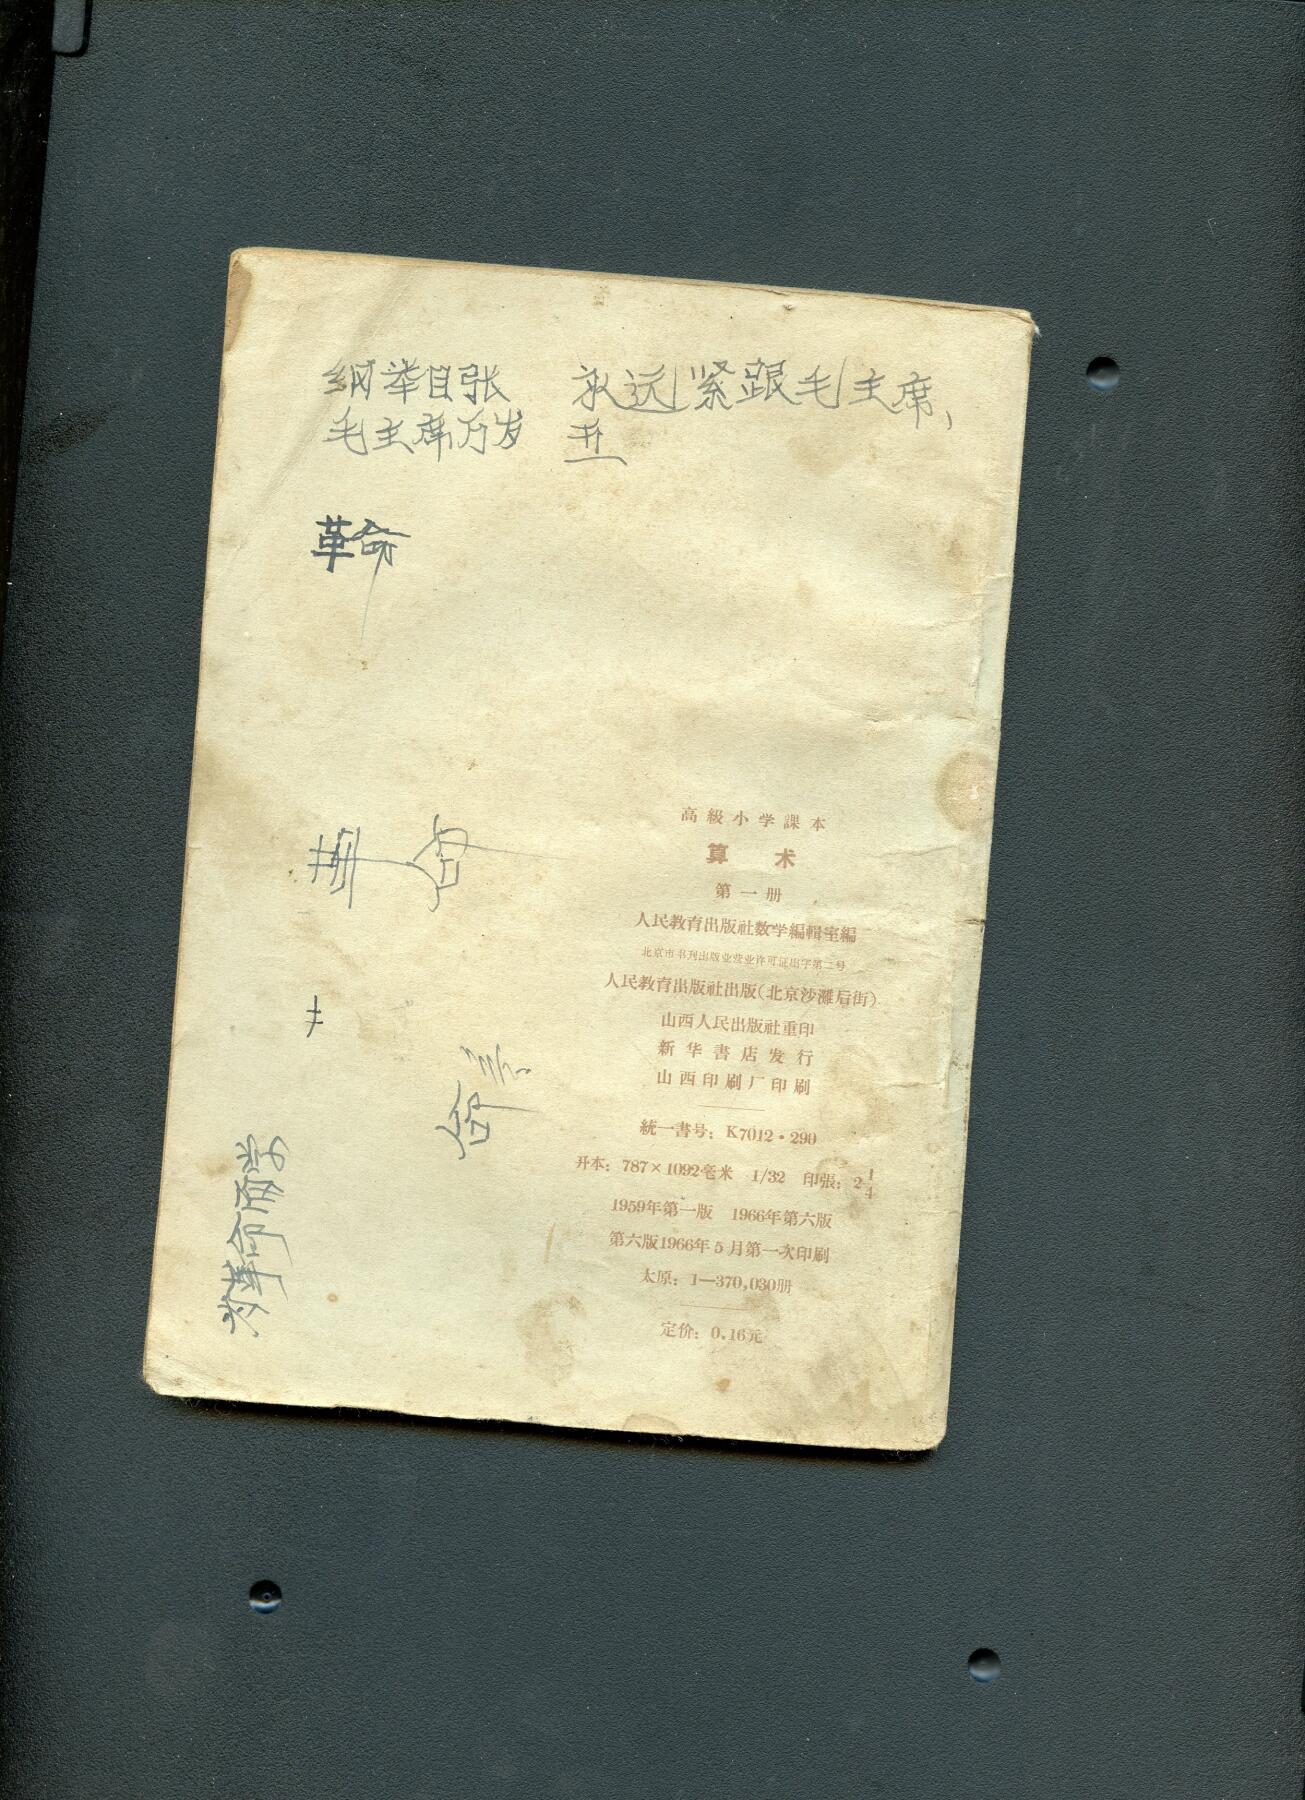 纲举目张　永远紧跟毛主席，
毛主席万岁
革命
高級小学課本
算术
第一册
人民教育出版社数学編輯室編
北京市书刊出版业营业许可证出字第二号
人民教育出版社出版（北京沙灘后街）
山西人民出版社重印
新华書店发行
山西印刷厂印刷
統一書号：K7012·290
开本：787×1092毫米 1/32 印張：2 1/4
1959年第一版 1966年第六版
第六版1966年5月第一次印刷
太原：1—370,030册
定价：0.16元
为革命而学